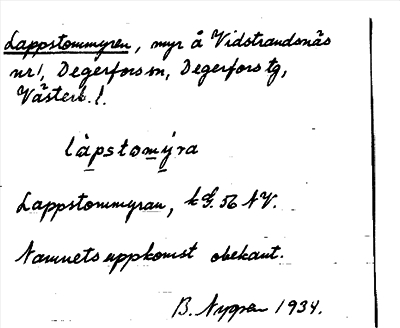 Lappstommyren, myr å Vidstrandsnäs
nr 1, Degerfors sn, Degerfors tg,
Västerb. l.
làpstomýra
Lappstommyran, k bl. 56 NV.
Namnets uppkomst obekant.
B. Nygren 1934.